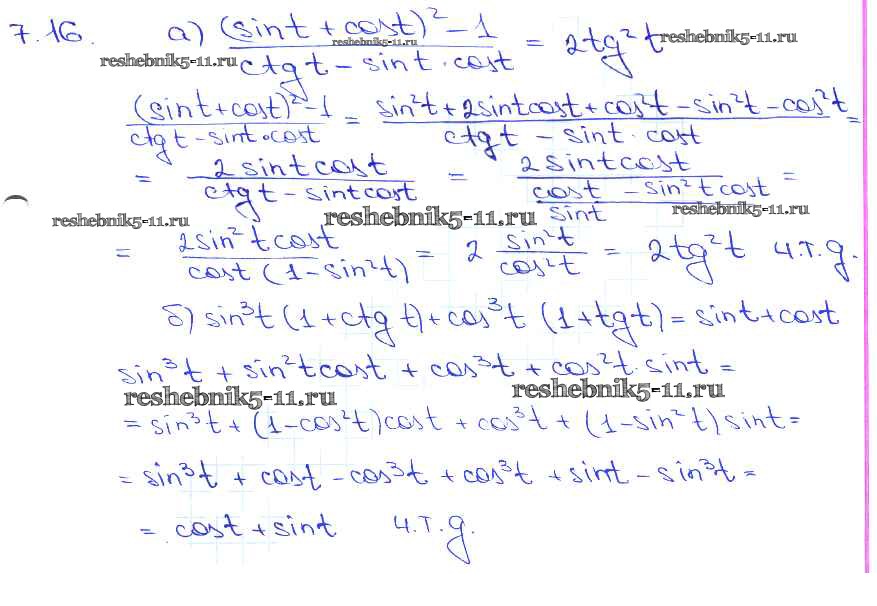 7.16. а) ((sint + cost)² - 1)/(ctg t - sint · cost) = 2tg²t
reshebnik5-11.ru reshebnik5-11.ru reshebnik5-11.ru
((sint + cost)² - 1)/(ctg t - sint · cost) = (sin²t + 2sintcost + cos²t - sin²t - cos²t)/(ctg t - sint · cost) =
= (2sintcost)/(ctg t - sintcost) = (2sintcost)/((cost - sin²t cost)/sint) =
reshebnik5-11.ru reshebnik5-11.ru reshebnik5-11.ru
= (2sin²t cost)/(cost (1 - sin²t)) = 2 sin²t/cos²t = 2tg²t ч.т.д.
б) sin³t (1 + ctg t) + cos³t (1 + tg t) = sint + cost
sin³t + sin²t cost + cos³t + cos²t · sint =
reshebnik5-11.ru reshebnik5-11.ru
= sin³t + (1 - cos²t) cost + cos³t + (1 - sin²t) sint =
= sin³t + cost - cos³t + cos³t + sint - sin³t =
= cost + sint ч.т.д.